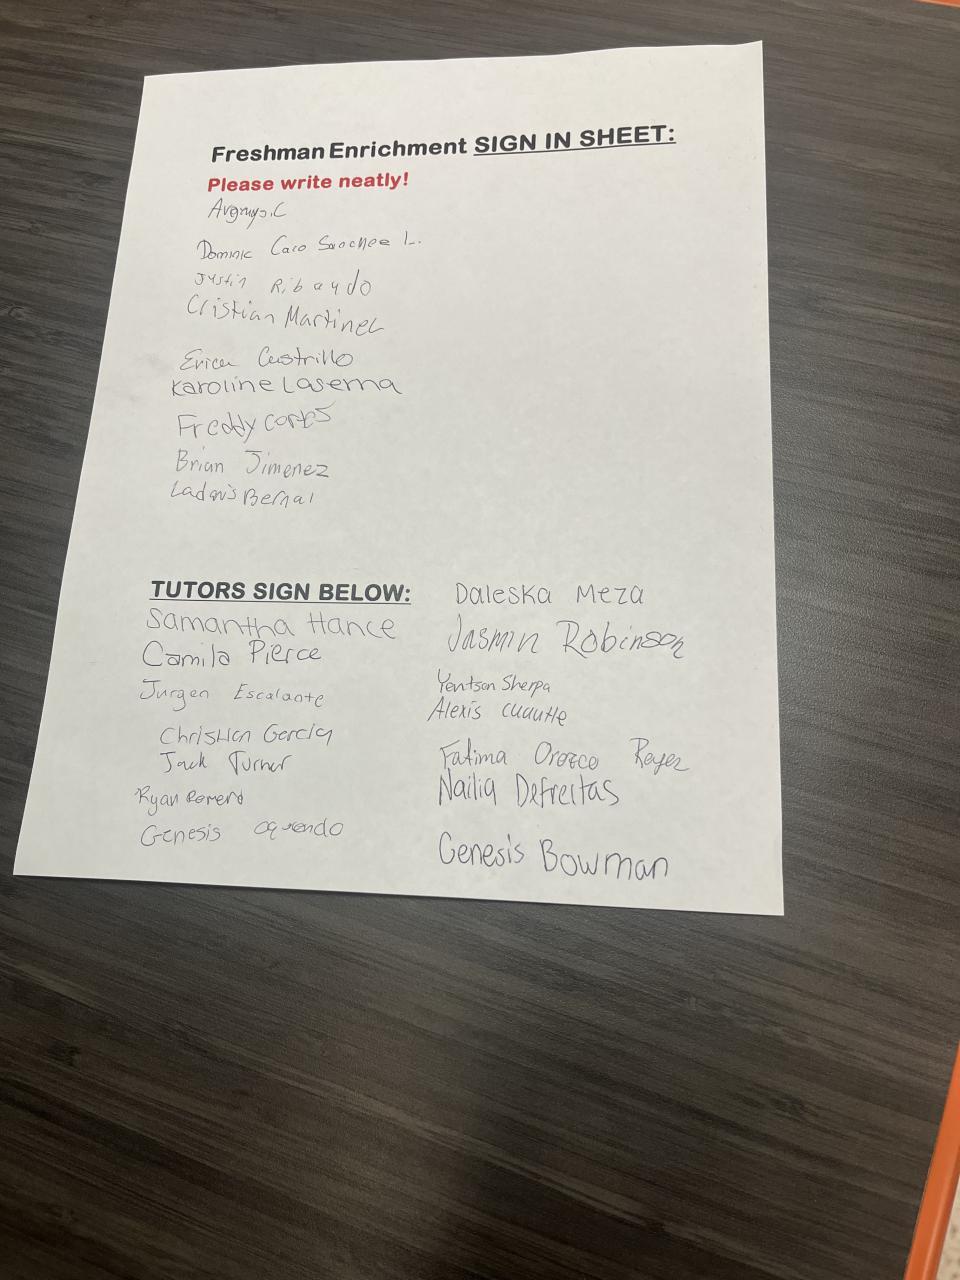 Freshman Enrichment SIGN IN SHEET:
Please write neatly!
Dominic Caro L.
Justin Ribaudo
Cristian Martinez
Erica Castrillo
Karoline Laserna
Freddy Cortes
Brian Jimenez
Bernal
TUTORS SIGN BELOW:
Samantha Hance
Camila Pierce
Jurgen Escalante
Christian Garcia
Jack Turner
Ryan Romero
Genesis Oquendo
Daleska Meza
Jasmin Robinson
Sherpa
Alexis Cuautle
Fatima Orozco Reyes
Nailia Defreitas
Genesis Bowman